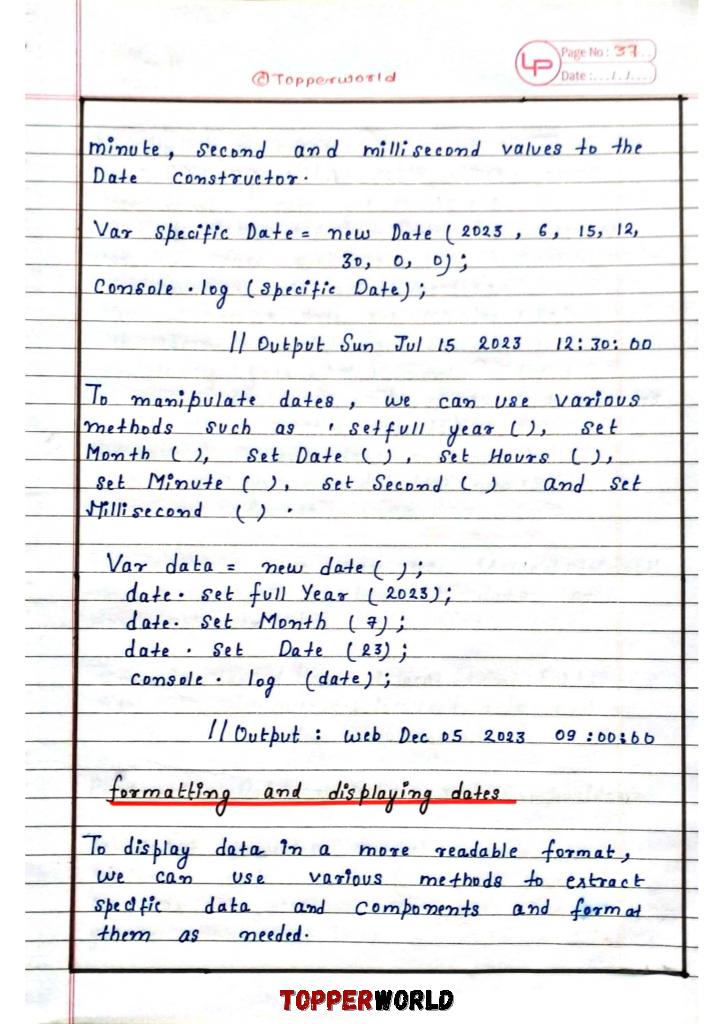 ©Topperworld
LP
Page No: 37...
Date:.../../....
minute, second and millisecond values to the
Date constructor.
Var specific Date = new Date ( 2023 , 6, 15, 12,
30, 0, 0);
Console . log ( specific Date) ;
// Output Sun Jul 15 2023 12:30:00
To manipulate dates, we can use various
methods such as ' setfull year ( ), set
Month ( ), set Date ( ), set Hours ( ),
set Minute ( ), set Second ( ) and set
Millisecond ( ) .
Var data = new date ( ) ;
date . set full Year ( 2023) ;
date . set Month ( 7) ;
date . set Date (23) ;
console . log (date) ;
// Output : web Dec 05 2023 09 :00:00
formatting and displaying dates
To display data in a more readable format,
we can use various methods to extract
specific data and components and format
them as needed.
TOPPERWORLD